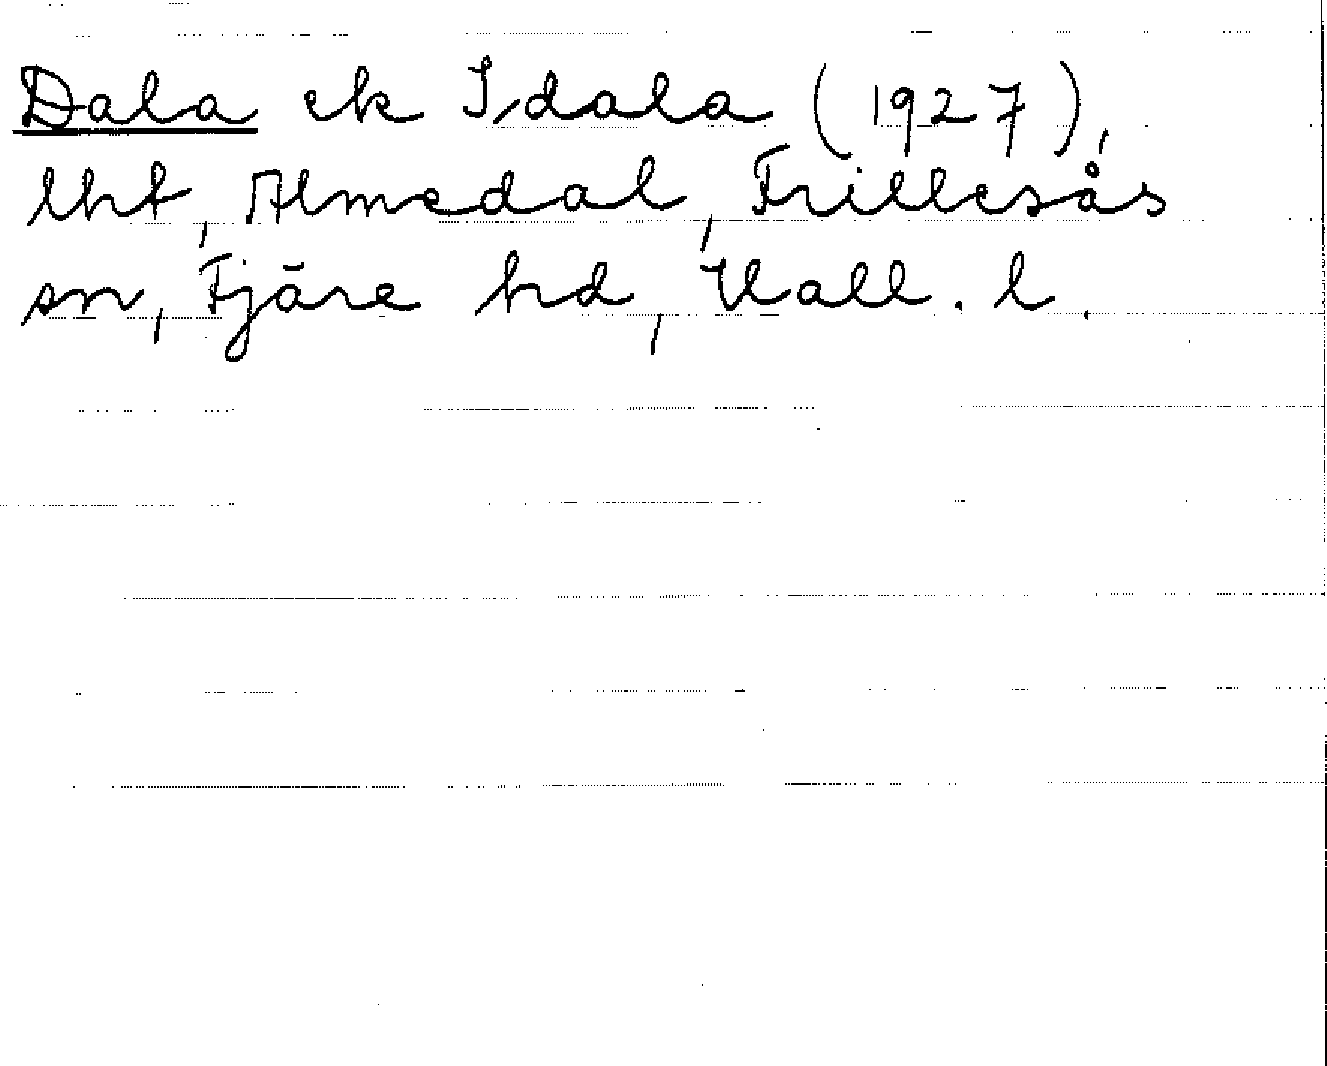 Dala ek Idala (1927),
lht, Almedal, Frillesås
sn, Fjäre hd, Hall. l.